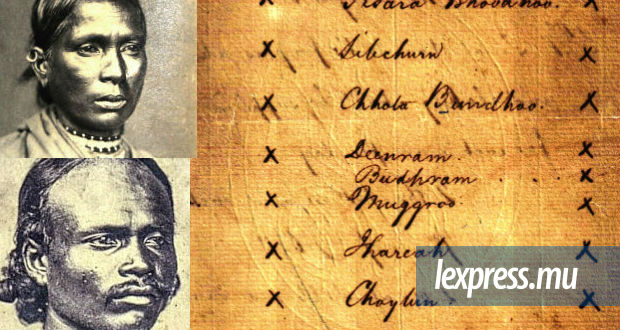 x Bhoodhoo. x
x Sibchurn x
x Chhota Bundhoo. x
x Deenram. x
Budhram x
x Muggroo x
x Jhareah x
lexpress.mu
x x